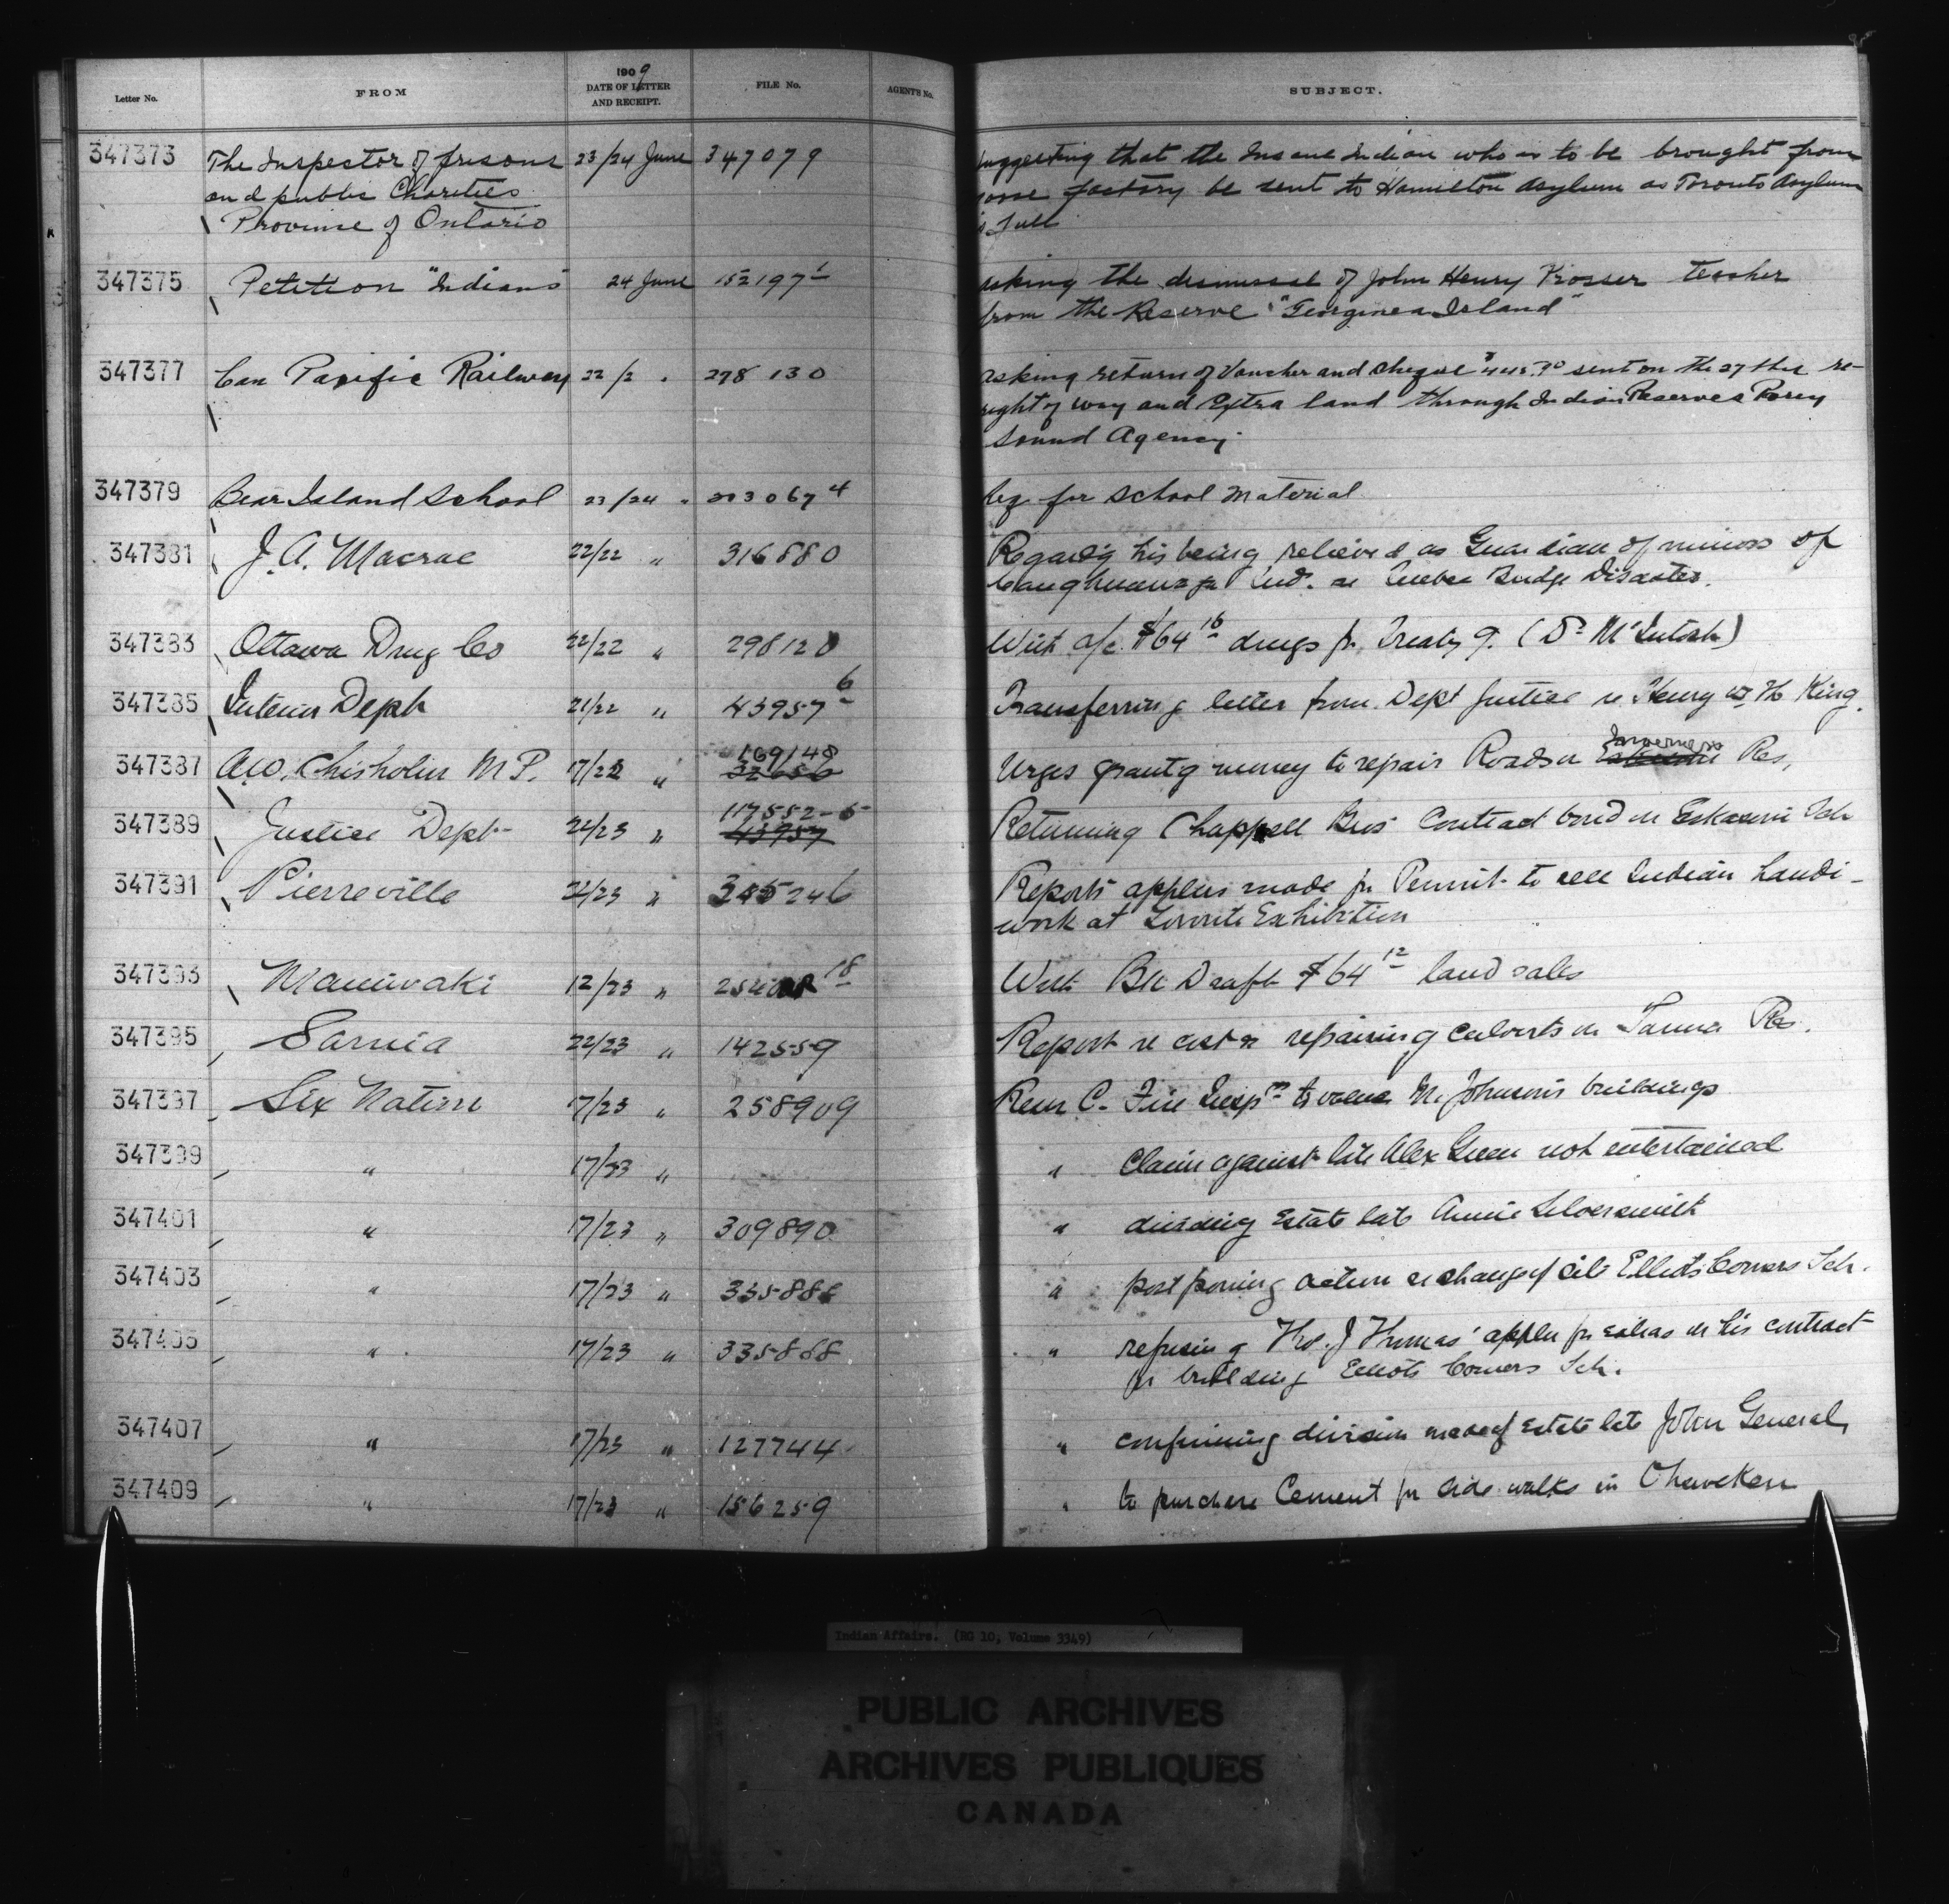 Letter No. FROM 1909 DATE OF LETTER AND RECEIPT. FILE No. AGENT'S No. SUBJECT.
347373 The Inspector of prisons 23/24 June 347079 suggesting that the Insane Indian who is to be brought from
and public Charities factory be sent to Hamilton Asylum as Toronto Asylum
Province of Ontario is full
347375 Petition "Indians" 24 June 152197-1 asking the dismissal of John Henry Prosser teacher
from the Reserve "Georginea Island"
347377 Can Pacific Railway 22/2 " 278130 asking return of Voucher and cheque sent on the 27 re-
right of way and Extra land through Indian Reserves Parry
Sound Agency.
347379 Bear Island School 23/24 " 303067-4 for School Material
347381 J. A. Macrae 22/22 " 316880 Regard'g his being relieved as Guardian of minors of
Caughnawaga Ind. re Quebec Bridge Disaster.
347383 Ottawa Drug Co 22/22 " 298120 With a/c $64 16 drugs for Treaty 9. (Dr McIntosh)
347385 Interior Dept 21/22 " 43957-6 Transferring letter from Dept Justice re Henry W. H. King.
347387 A.W. Chisholm M.P. 17/22 " 169148 Urges grant'g money to repair Roads on Inverness Res,
347389 Justice Dept 22/23 " 117552-5 43957 Returning Chappell Bros' Contract bond on Eskasoni Sch
347391 Pierreville 22/23 " 345246 Reports applns made for Permit to sell Indian handi-
work at Toronto Exhibition
347393 Maniwaki 12/23 " 18 With Bk Draft $64 12 land sales
347395 Sarnia 22/23 " 142559 Report re cost of repairing culverts on Res.
347397 Six Nation 17/23 " 258909 Resn C. Fire Insp'n to M. Johnson's buildings
347399 " 17/23 " " Claim against late Alex Green not entertained
347401 " 17/23 " 309890 " dividing Estate late Annie Silversmith
347403 " 17/23 " 335888 " postponing action re change of site Elliots Corners Sch.
347405 " 17/23 " 335868 " refusing Thos. J Thomas' appln for extras on his contract
for building Elliots Corners Sch.
347407 " 17/23 " 127744 " confirming division made of Estate late John General
347409 " 17/23 " 156259 " to purchase Cement for side walks in Ohsweken
Indian Affairs. (RG 10, Volume 3349)
PUBLIC ARCHIVES
ARCHIVES PUBLIQUES
CANADA